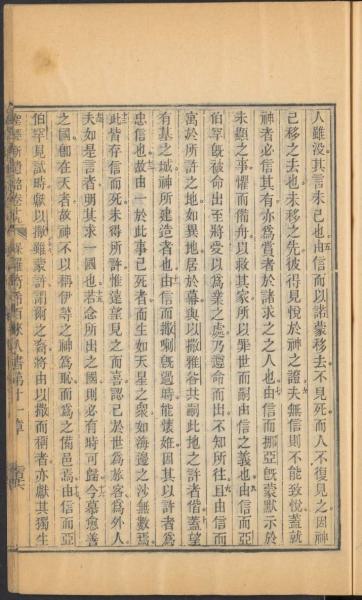 人雖沒其言未已也由信而以諾蒙移去不見死而人不復見之因神
己移之去也未移之先彼得見悅於神之證夫無信則不能致悅蓋就
神者必信其有亦為賞者於諸求之之人也由信而挪亞旣蒙默示於
未顯之事懼而備舟以救其家所以罪世而嗣由信之義也由信而亞
伯罕旣被命出至將受以為業之處乃遵命而出不知所往且由信而
寓於所許之地如異地居於幕與以撒雅各共嗣此地之許者偕蓋望
有基之城神所建造者也由信而撒喇旣過時能懷姙因其以許者為
忠信也故由一於此事已死者而生如天星之衆如海邊之沙無數焉
此皆存信而死未得所許惟遠望見之而喜認己於世為旅客為外人
夫如是言者明其求一國也若念所出之國則必有時可歸今慕愈善
之國卽在天者故神不以稱伊等之神為恥而為之備邑焉由信而亞
伯罕見試時獻以撒雖蒙許謂爾之裔將由以撒而稱者亦獻其獨生